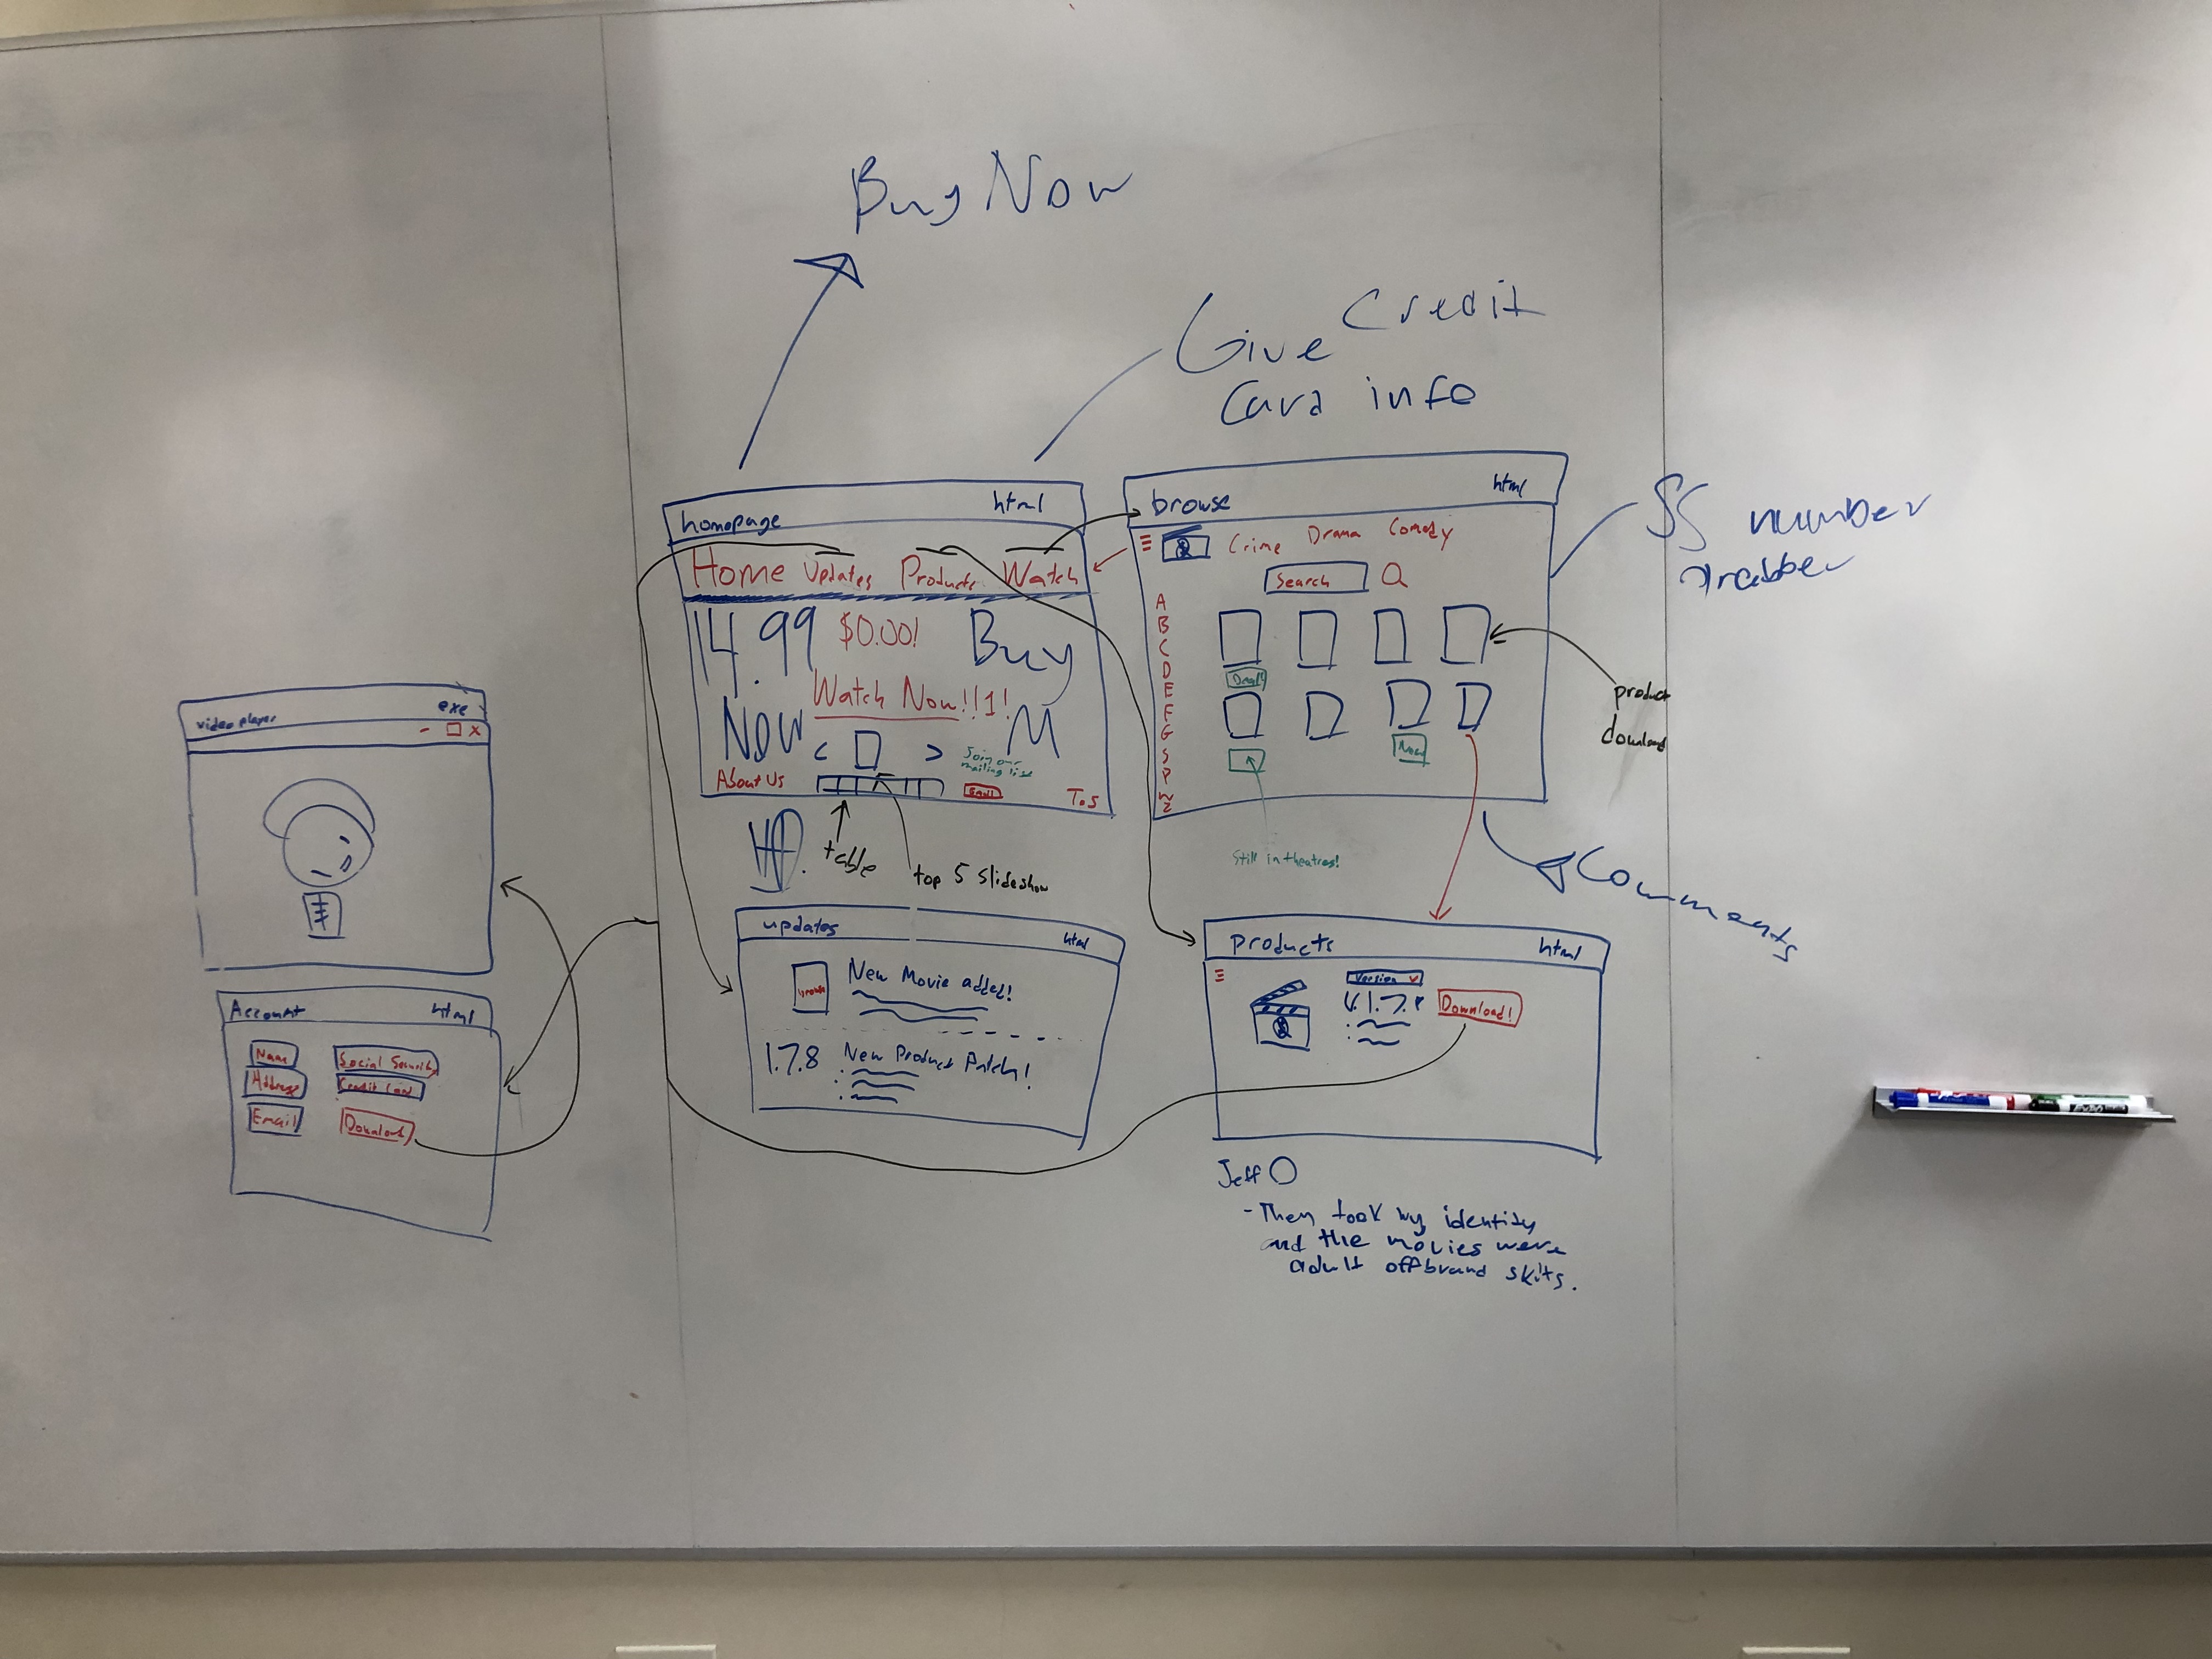 Buy Now
Give Credit
Card info
homepage html
Home Updates Products Watch
14.99 $0.00! Buy
Watch Now!!1!
Now < >
Join our
mailing list
About Us Email T.o.S
table
top 5 slideshow
browse html
Crime Drama Comedy
Search
A
B
C
D
E
F
G
S
P
W
Z
New
Still in theatres!
product
download
SS number
Comments
video player exe
- x
Account html
Name Social Security
Address Credit Card
Email Download
updates html
New Movie added!
1.7.8 New Product Patch!
products html
Version
Download!
Jeff
- They took my identity
and the movies were
adult offbrand skits.
EXPO